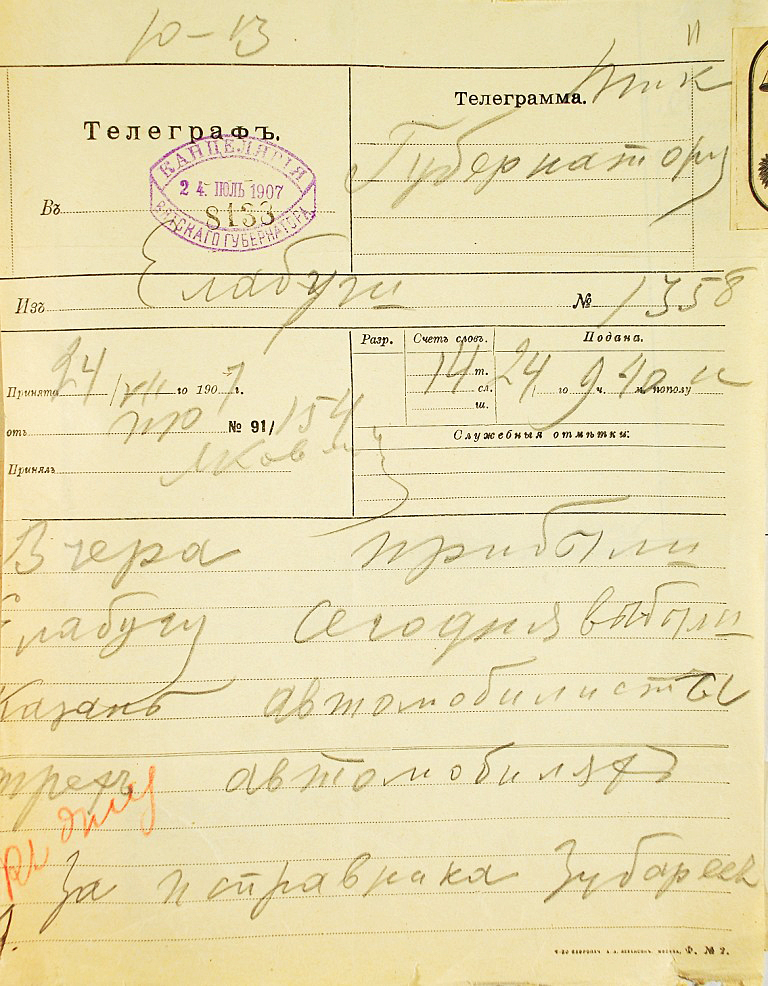 10-13
Телеграфъ.
Телеграмма.
Губернатору
КАНЦЕЛЯРІЯ
24. ІЮЛЬ 1907
8133
ВЯТСКАГО ГУБЕРНАТОРА
Въ
Изъ Елабуги № 1358
Принята 24/VII го 1907 г.
отъ № 91/154
Принялъ
Разр. Счетъ словъ. Подана.
14 т. сл. ш.
24 го 9 ч. 40 м. пополу
Служебныя отмѣтки:
Вчера прибыли
Елабугу сегодня выбыли
Казань автомобилисты
трехъ автомобиляхъ
Къ дѣлу
За исправника Зубарев
Ф. № 2.